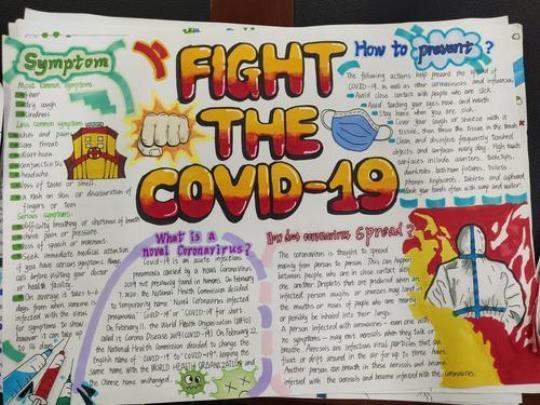 Symptom
Most common symptoms:
fever
dry cough
tiredness
Less common symptoms:
aches and pains
sore throat
diarrhoea
conjunctivitis
headache
loss of taste or smell
a rash on skin, or discolouration of
fingers or toes
Serious symptoms:
difficulty breathing or shortness of breath
chest pain or pressure
loss of speech or movement
Seek immediate medical attention
if you have serious symptoms. Always
call before visiting your doctor
or health facility.
On average it takes 5-6
days from when someone is
infected with the virus
for symptoms to show,
however it can take up
to 14 days
FIGHT
THE
COVID-19
How to prevent ?
The following actions help prevent the spread of
COVID-19, as well as other coronaviruses and influenza:
Avoid close contact with people who are sick.
Avoid touching your eyes, nose, and mouth.
Stay home when you are sick.
Cover your cough or sneeze with a
tissue, then throw the tissue in the trash.
Clean and disinfect frequently touched
objects and surfaces every day. High touch
surfaces include counters, tabletops,
doorknobs, bathroom fixtures, toilets,
phones, keyboards, tablets, and
wash your hands often with soap and water.
What is a
novel Coronavirus?
COVID-19 is an acute infectious
pneumonia caused by a novel Coronavirus
not previously found in humans. On February
the National Health Commission decided
to temporarily name "Novel Coronavirus infected
pneumonia"
On February 11, the World Health Organization
On February 22,
the National Health Commission decided to change the
English name of to "COVID-19", keeping the
same name with the WORLD HEALTH ORGANIZATION and
the Chinese name unchanged.
How does coronavirus spread?
The coronavirus is thought to spread
mainly from person to person. This can happen
between people who are in close contact with
one another. Droplets that are produced when an
infected person coughs or sneezes may land in
the mouths or noses of people who are nearby,
or possibly be inhaled into their lungs.
A person infected with coronavirus - even one with
no symptoms - may emit aerosols when they talk or
breathe. Aerosols are infectious viral particles that can
float or drift around in the air for up to three hours.
Another person can breathe in these aerosols and become
infected with the coronavirus.